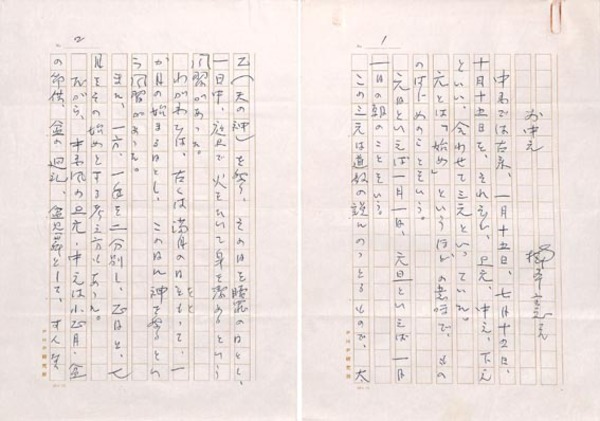 1
お中元
中国では古来、一月十五日、七月十五日、
十月十五日を、それぞれ、上元、中元、下元
といい、合わせて三元といっていた。
元とは「始め」というほどの意味で、もの
のはじめのことをいう。
元日といえば一月一日、元旦といえば一月
一日の朝のことをいう。
この三元は道教の説にのっとるもので、太
2
乙(天の神)を祭り、その日を贖罪の日とし、
一日中、庭で火をたいて身を潔めるという
風習があった。
わがくにでは、古くは満月の日をもって、一
か月の始まる日とし、この日に神を祭るとい
う風習があった。
また、一方、一年を二分別し、正月と、七
月をその始めとする考え方もあった。
の御供、盆の廻礼、